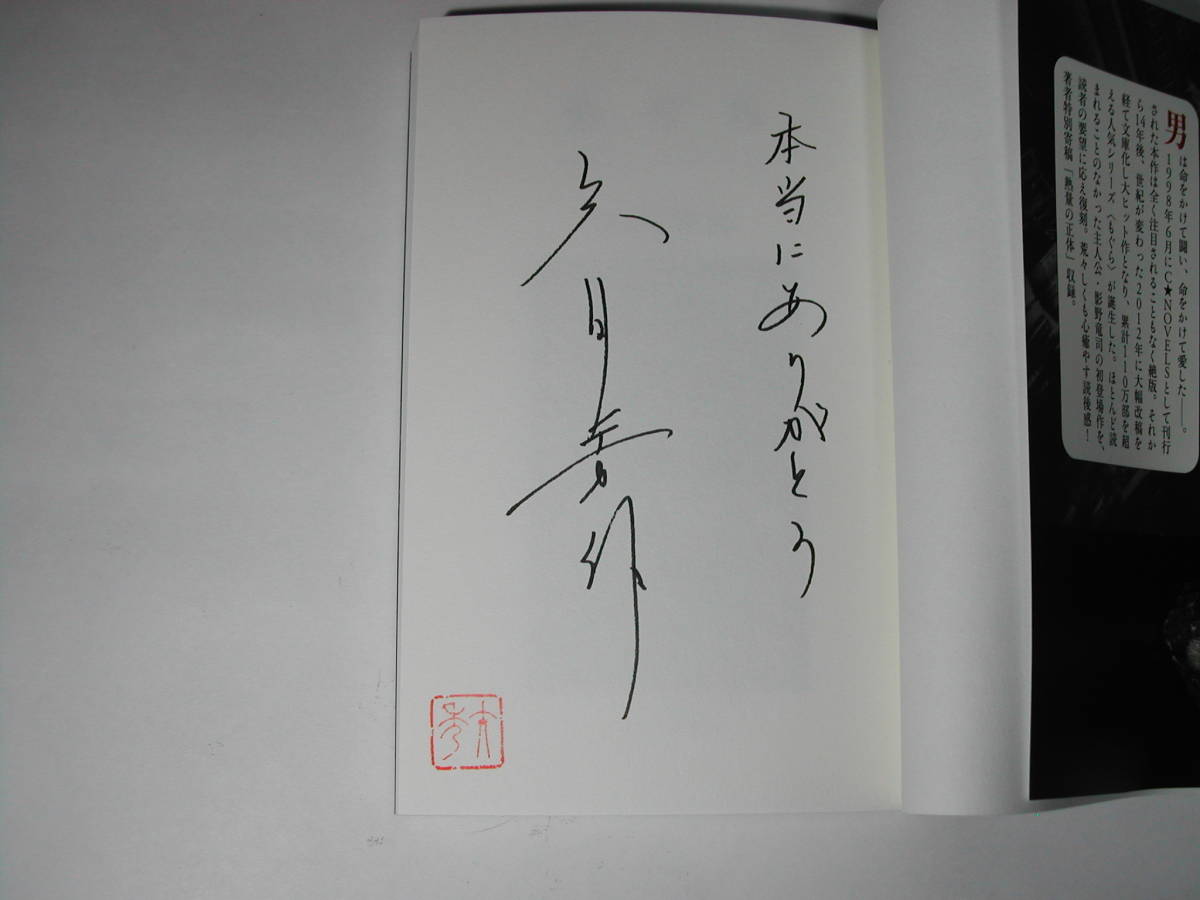 男は命をかけて闘い、命をかけて愛した――。
1998年6月にC★NOVELSとして刊行
された本作は全く注目されることもなく絶版。それか
ら14年後、世紀が変わった2012年に大幅改稿を
経て文庫化し大ヒット作となり、累計110万部を超
える人気シリーズ〈もぐら〉が誕生した。ほとんど読
まれることのなかった主人公・影野竜司の初登場作を、
読者の要望に応え復刻。荒々しくも心癒やす読後感！
著者特別寄稿「熱量の正体」収録。
本当にありがとう
矢月秀作